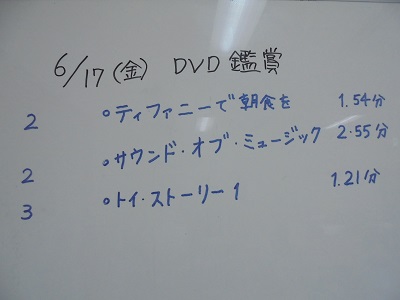 6/17(金) DVD 鑑賞
2 ○ティファニーで朝食を 1.54分
2 ○サウンド・オブ・ミュージック 2.55分
3 ○トイ・ストーリー1 1.21分